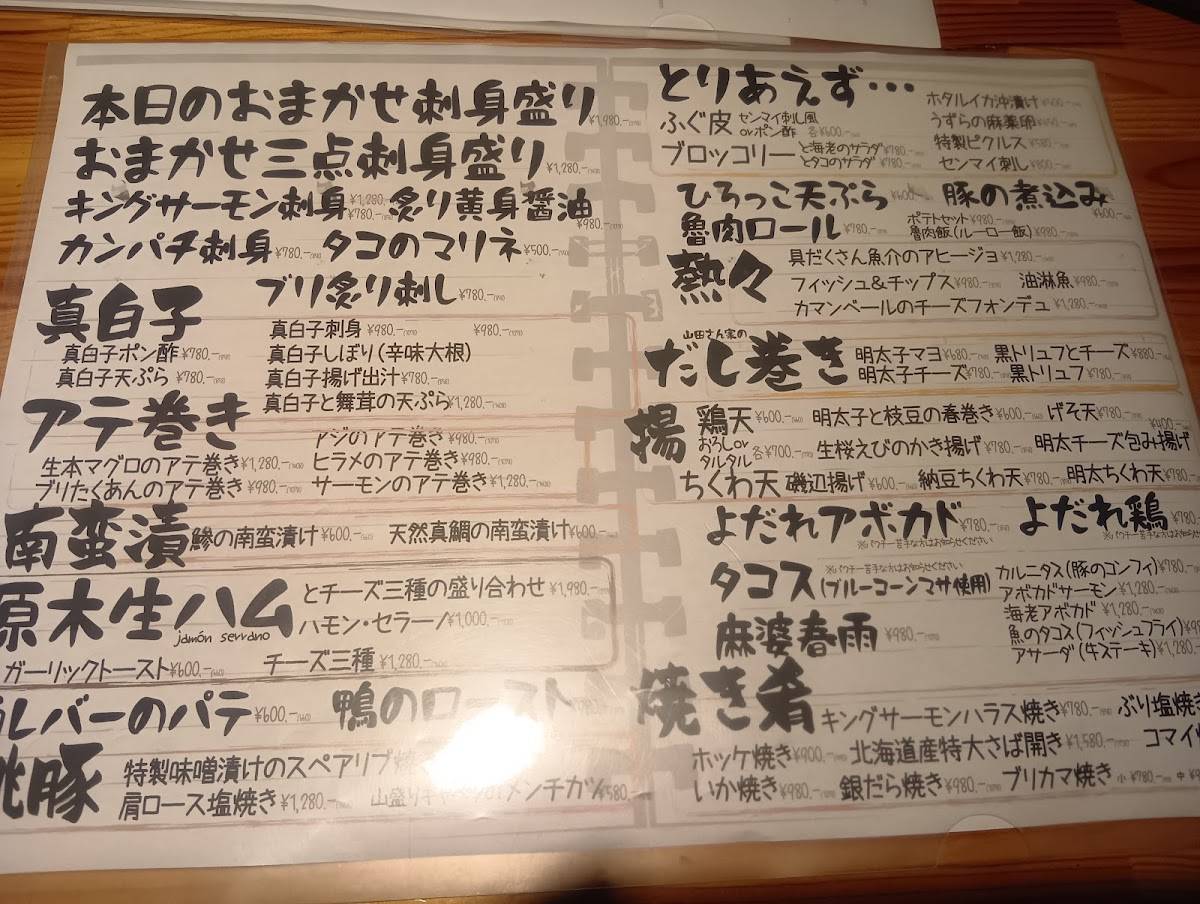 本日のおまかせ刺身盛り ¥1,980.-
おまかせ三点刺身盛り ¥1,280.-
キングサーモン刺身 ¥1,280.- ¥780.- 炙り黄身醤油 ¥980.-
カンパチ刺身 ¥780.- タコのマリネ ¥500.-
ブリ炙り刺し ¥780.-
真白子
真白子刺身 ¥980.- ¥980.-
真白子ポン酢 ¥780.- 真白子しぼり(辛味大根)
真白子天ぷら ¥780.- 真白子揚げ出汁 ¥780.-
真白子と舞茸の天ぷら ¥1,280.-
アテ巻き
アジのアテ巻き ¥980.-
生本マグロのアテ巻き ¥1,280.- ヒラメのアテ巻き ¥980.-
ブリたくあんのアテ巻き ¥980.- サーモンのアテ巻き ¥1,280.-
南蛮漬 鯵の南蛮漬け ¥600.- 天然真鯛の南蛮漬け ¥600.-
原木生ハム とチーズ三種の盛り合わせ ¥1,980.-
jamón serrano ハモン・セラーノ ¥1,000.-
ガーリックトースト ¥600.- チーズ三種 ¥1,280.-
レバーのパテ ¥600.- 鴨のロースト
豚 特製味噌漬けのスペアリブ
肩ロース塩焼き ¥1,280.- 山盛り メンチカツ ¥580.-
とりあえず…
ふぐ皮 センマイ刺し風 orポン酢 各¥600.-
ブロッコリー と海老のサラダ ¥780.- とタコのサラダ ¥780.-
ホタルイカ沖漬け
うずらの麻薬卵
特製ピクルス ¥580.-
センマイ刺し ¥800.-
ひろっこ天ぷら ¥600.- 豚の煮込み ¥600.-
魯肉ロール ¥780.- ポテトセット ¥980.-
魯肉飯(ルーロー飯) ¥980.-
熱々 具だくさん魚介のアヒージョ ¥1,280.-
フィッシュ&チップス ¥980.- 油淋魚 ¥980.-
カマンベールのチーズフォンデュ ¥1,280.-
山田さん家の
だし巻き 明太子マヨ ¥680.- 黒トリュフとチーズ ¥880.-
明太子チーズ ¥780.- 黒トリュフ ¥780.-
揚 鶏天 ¥600.- 明太子と枝豆の春巻き ¥600.- げそ天 ¥780.-
おろしor タルタル 各¥700.- 生桜えびのかき揚げ ¥780.- 明太チーズ包み揚げ ¥400.-
ちくわ天 磯辺揚げ ¥600.- 納豆ちくわ天 ¥780.- 明太ちくわ天 ¥780.-
よだれアボカド ¥780.- よだれ鶏 ¥780.-
※パクチー苦手な方はお知らせください
※パクチー苦手な方はお知らせください
タコス(ブルーコーンマサ使用)
カルニタス(豚のコンフィ) ¥780.-
アボカドサーモン ¥1,280.-
海老アボカド ¥1,280.-
魚のタコス(フィッシュフライ)
アサーダ(牛ステーキ) ¥1,280.-
麻婆春雨 ¥980.-
焼き肴 キングサーモンハラス焼き ¥780.- ぶり塩焼き
ホッケ焼き ¥900.- 北海道産特大さば開き ¥1,580.- コマイ
いか焼き ¥980.- 銀だら焼き ¥980.- ブリカマ焼き 小 ¥780.- 中